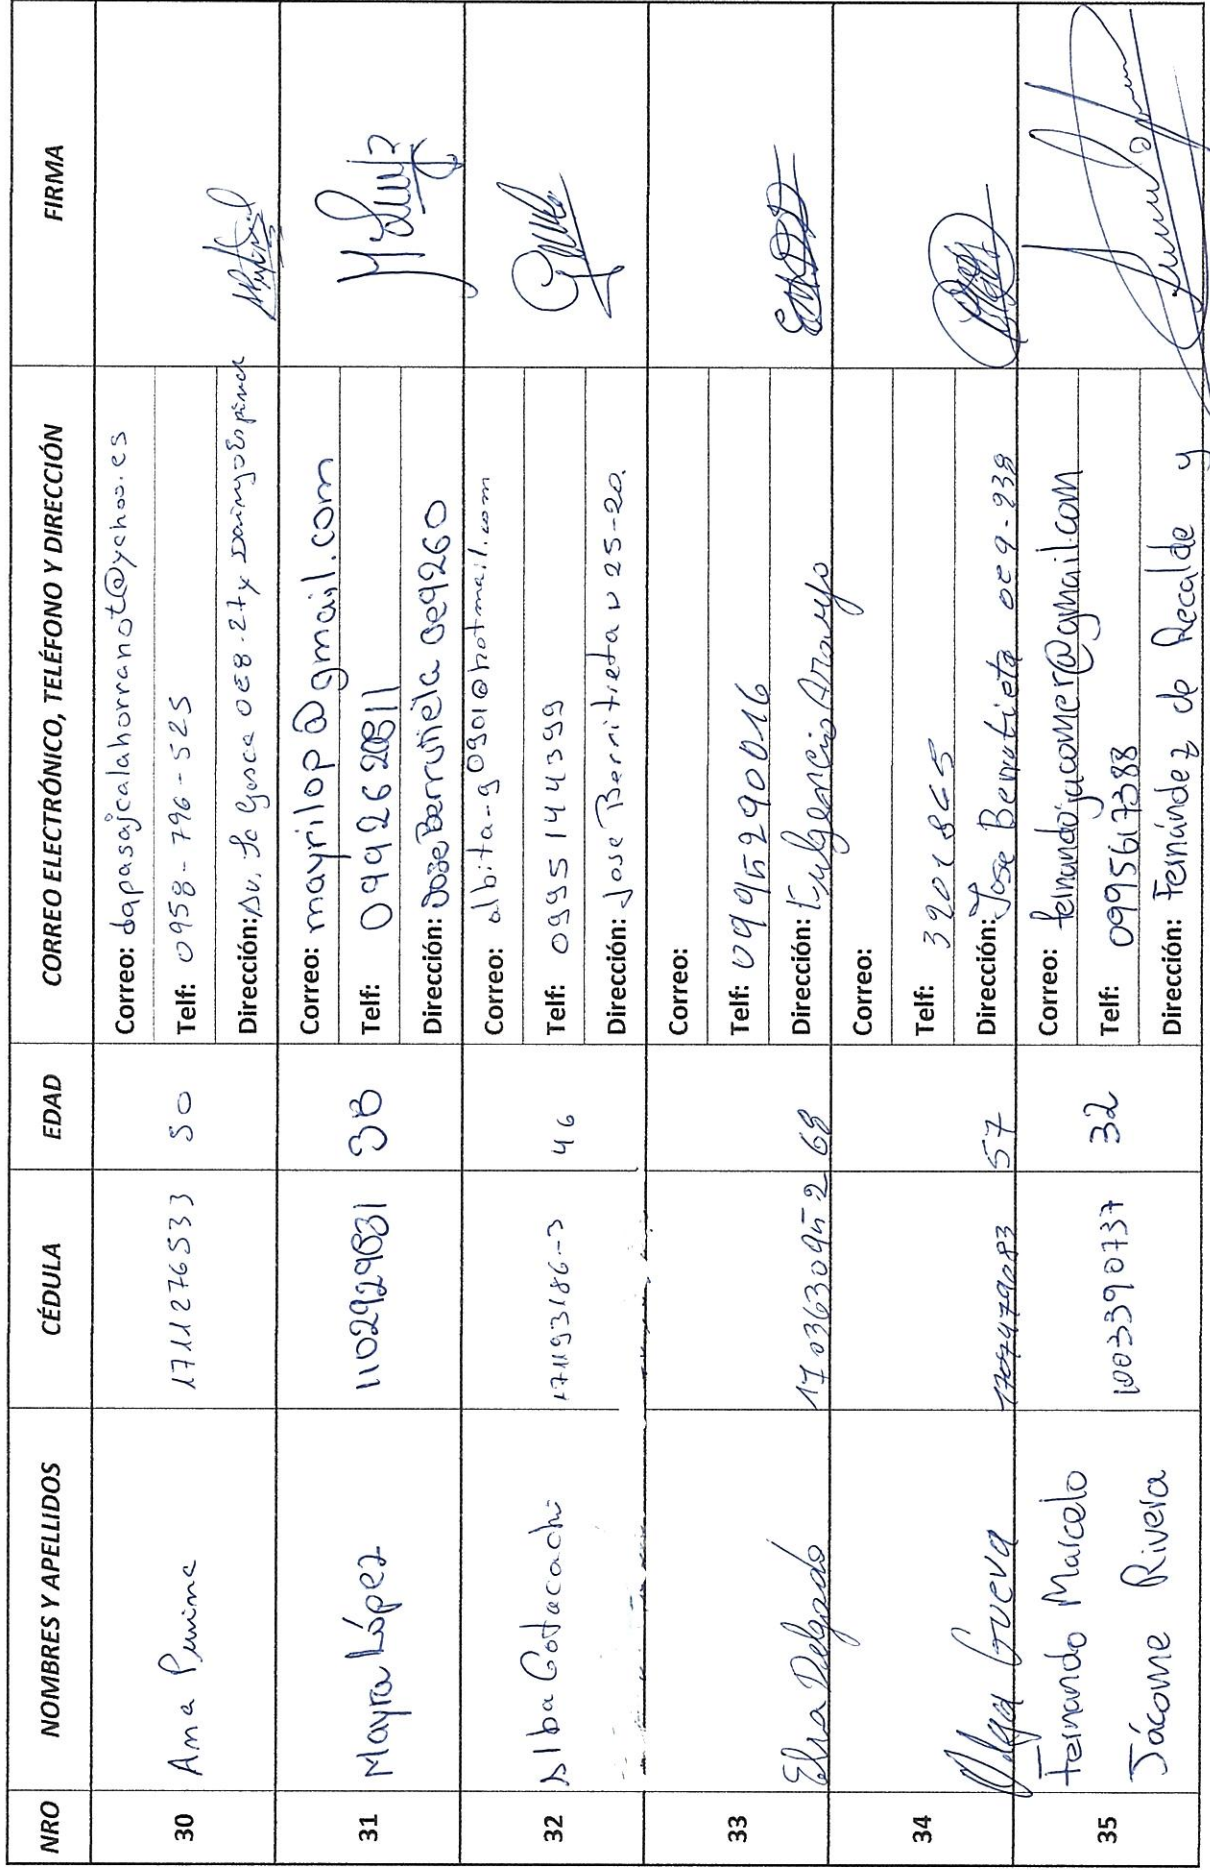 NRO NOMBRES Y APELLIDOS CÉDULA EDAD CORREO ELECTRÓNICO, TELÉFONO Y DIRECCIÓN FIRMA
30 Ana Punina 1711276533 50
Correo: dapasajcalahorranot@yahoo.es
Telf: 0958-796-525
Dirección: Av. La Gasca OE8-27 y
31 Mayra López 1102929831 38
Correo: mayrilop@gmail.com
Telf: 0992620811
Dirección: José Berrutieta oe9260
32 Alba Cotacachi 171193186-3 46
Correo: albita-g0901@hotmail.com
Telf: 0995144399
Dirección: Jose Berritieta v 25-20.
33 Elsa Delgado 1703630952 68
Correo:
Telf: 0995290016
Dirección: Fulgencio Araujo
34 Olga Cueva 1707479083 57
Correo:
Telf: 3201865
Dirección: Jose Berrutieta oe9-238
35 Fernando Marcelo Jácome Rivera 1003390737 32
Correo: fernandojacomer@gmail.com
Telf: 0995617388
Dirección: Fernández de Recalde y